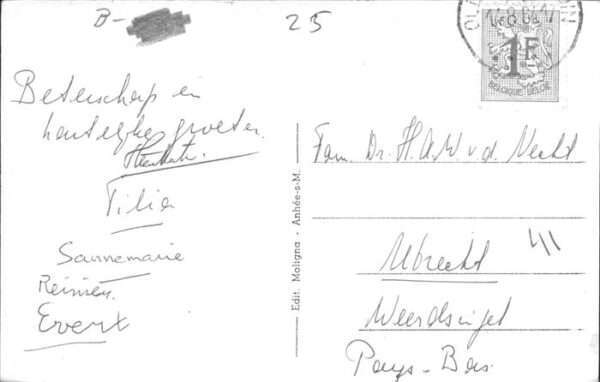 B-
25
Beterschap en
hartelijke groeten.
Tilia
Sannemarie
Reinier.
Evert
Edit. Maligna - Anhée-s-M.
14.8.61.17
1F
BELGIQUE-BELGIË
Fam. Dr. H.A.W. v. d. Vecht
Utrecht 41
Weerdsingel
Pays-Bas